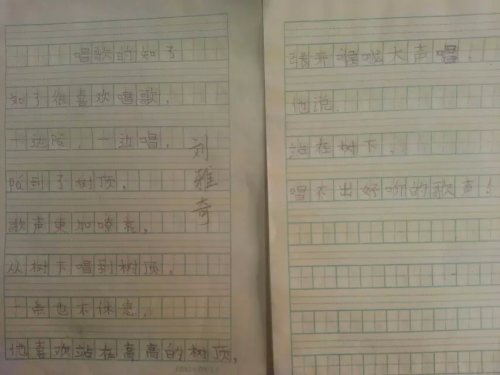 唱歌的知了
知了很喜欢唱歌，
一边爬，一边唱，
爬到了树顶，
歌声更加嘹亮，
从树下唱到树顶，
一点也不休息，
他喜欢站在高高的树顶，
刘雅奇
张开喉咙大声唱。
他说，
站在树下，
唱不出好听的歌声！